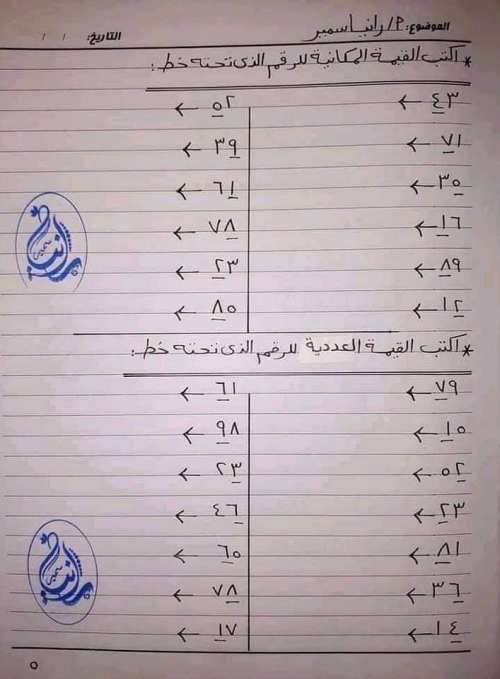 الموضوع: P/ رانيا سمير التاريخ: / /
* اكتب القيمة المكانية للرقم الذى تحته خط :
٤٣ ← ٥٢ ←
٧١ ← ٣٩ ←
٣٥ ← ٦١ ←
١٦ ← ٧٨ ←
٨٩ ← ٢٣ ←
١٢ ← ٨٥ ←
* اكتب القيمة العددية للرقم الذى تحته خط :
٧٩ ← ٦١ ←
١٥ ← ٩٨ ←
٥٢ ← ٢٣ ←
٢٣ ← ٤٦ ←
٨١ ← ٦٥ ←
٣٦ ← ٧٨ ←
١٤ ← ١٧ ←
٥